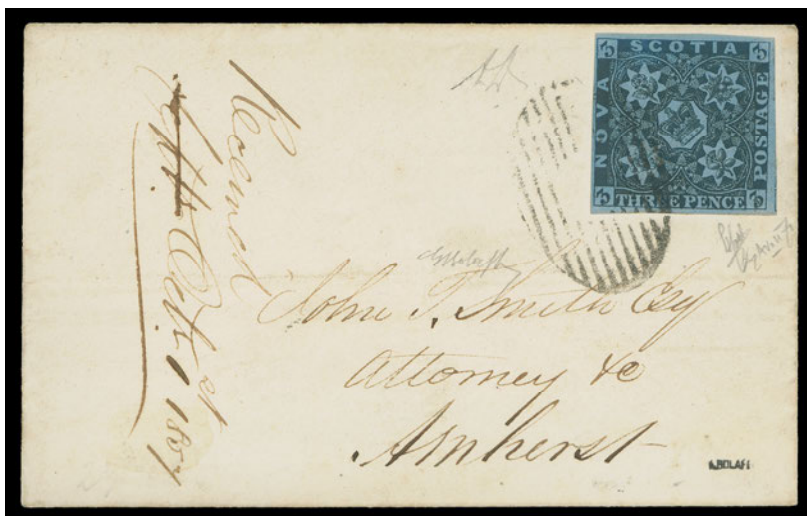 SCOTIA
NOVA
POSTAGE
THREE PENCE
3
3
3
3
Received
Oct 1st 1857
John T. Smith Esq
Attorney &c
Amherst
A.BOLAFFI